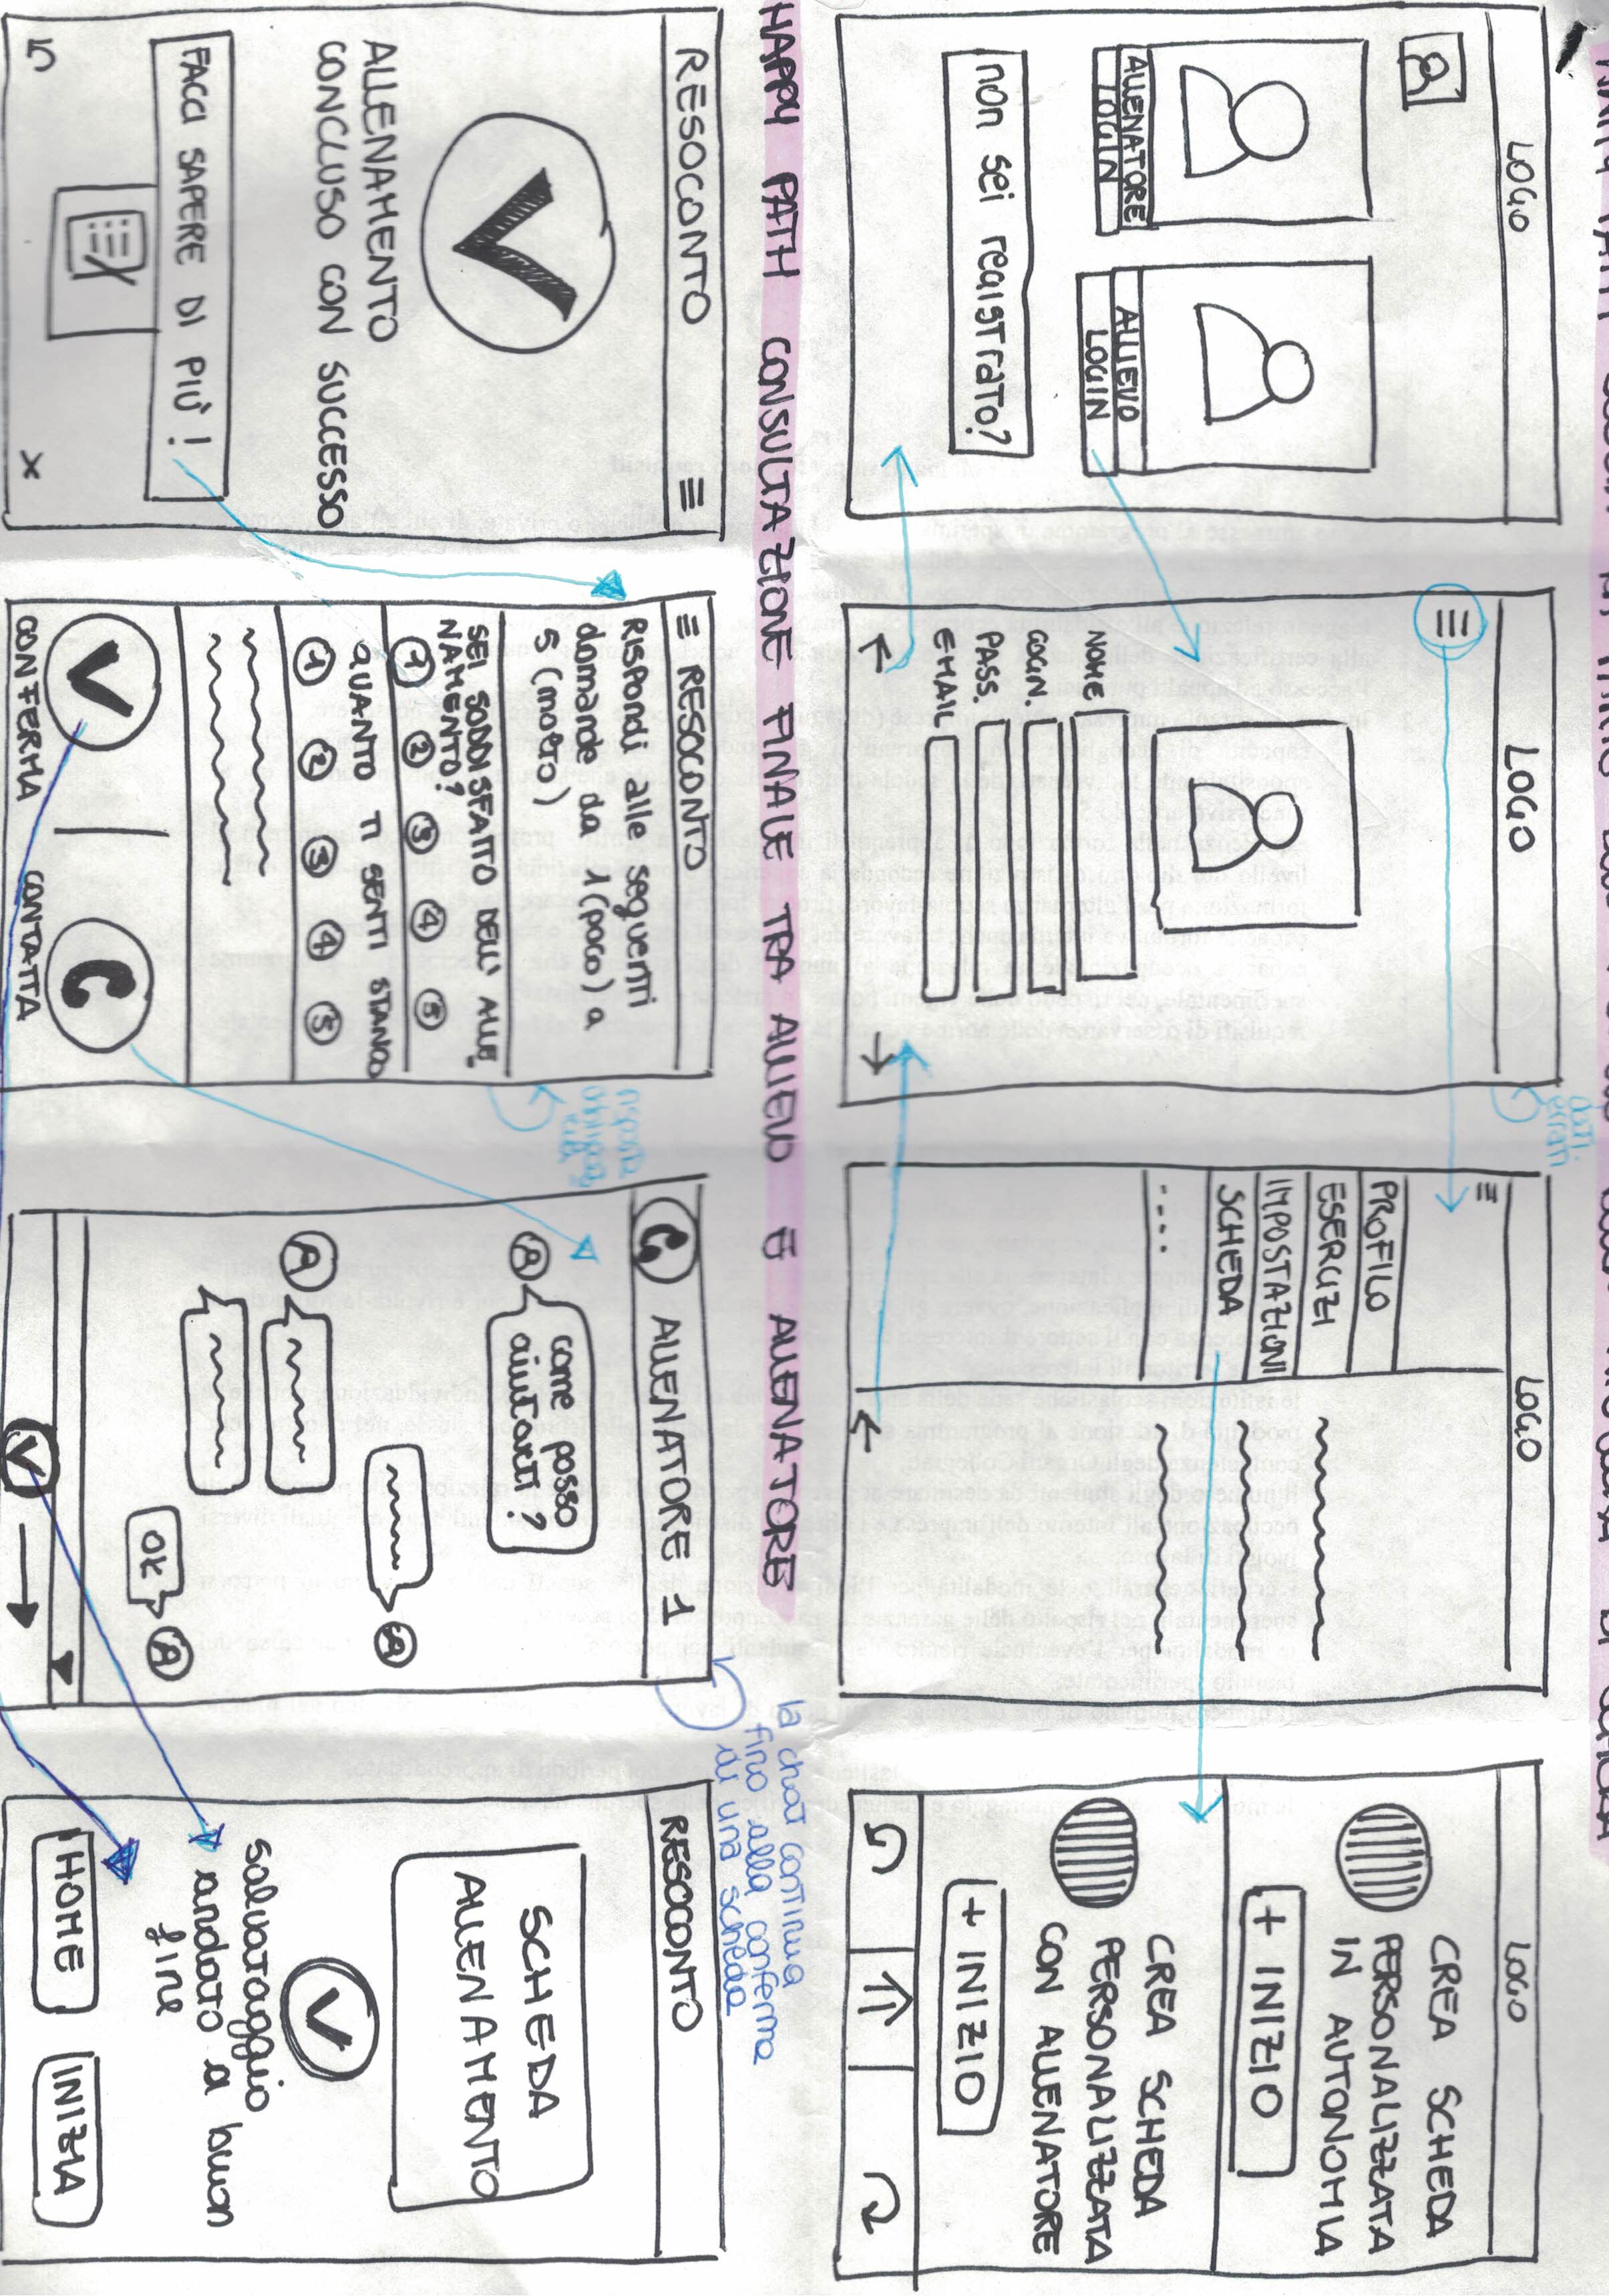 LOGO
ALLENATORE
LOGIN
ALLIEVO
LOGIN
non sei registrato?
LOGO
NOME
COGN.
PASS.
EMAIL
LOGO
PROFILO
ESERCIZI
IMPOSTAZIONI
SCHEDA
....
LOGO
CREA SCHEDA
PERSONALIZZATA
IN AUTONOMIA
+ INIZIO
CREA SCHEDA
PERSONALIZZATA
CON ALLENATORE
+ INIZIO
HAPPY PATH CONSULTAZIONE FINALE TRA ALLIEVO E ALLENATORE
RESOCONTO
ALLENAMENTO
CONCLUSO CON SUCCESSO
FACCI SAPERE DI PIÙ!
X
RESOCONTO
RISPONDI alle seguenti
domande da 1 (poco) a
5 (molto)
SEI SODDISFATTO DELL' ALLE
NAMENTO?
1 2 3 4 5
QUANTO TI SENTI STANCO
1 2 3 4 5
CONFERMA
CONTATTA
ALLENATORE 1
A
come posso
aiutarti?
A
A
OK
A
la chat continua
fino alla conferma
di una scheda
RESOCONTO
SCHEDA
ALLENAMENTO
salvataggio
andato a buon
fine
HOME
INIZIA